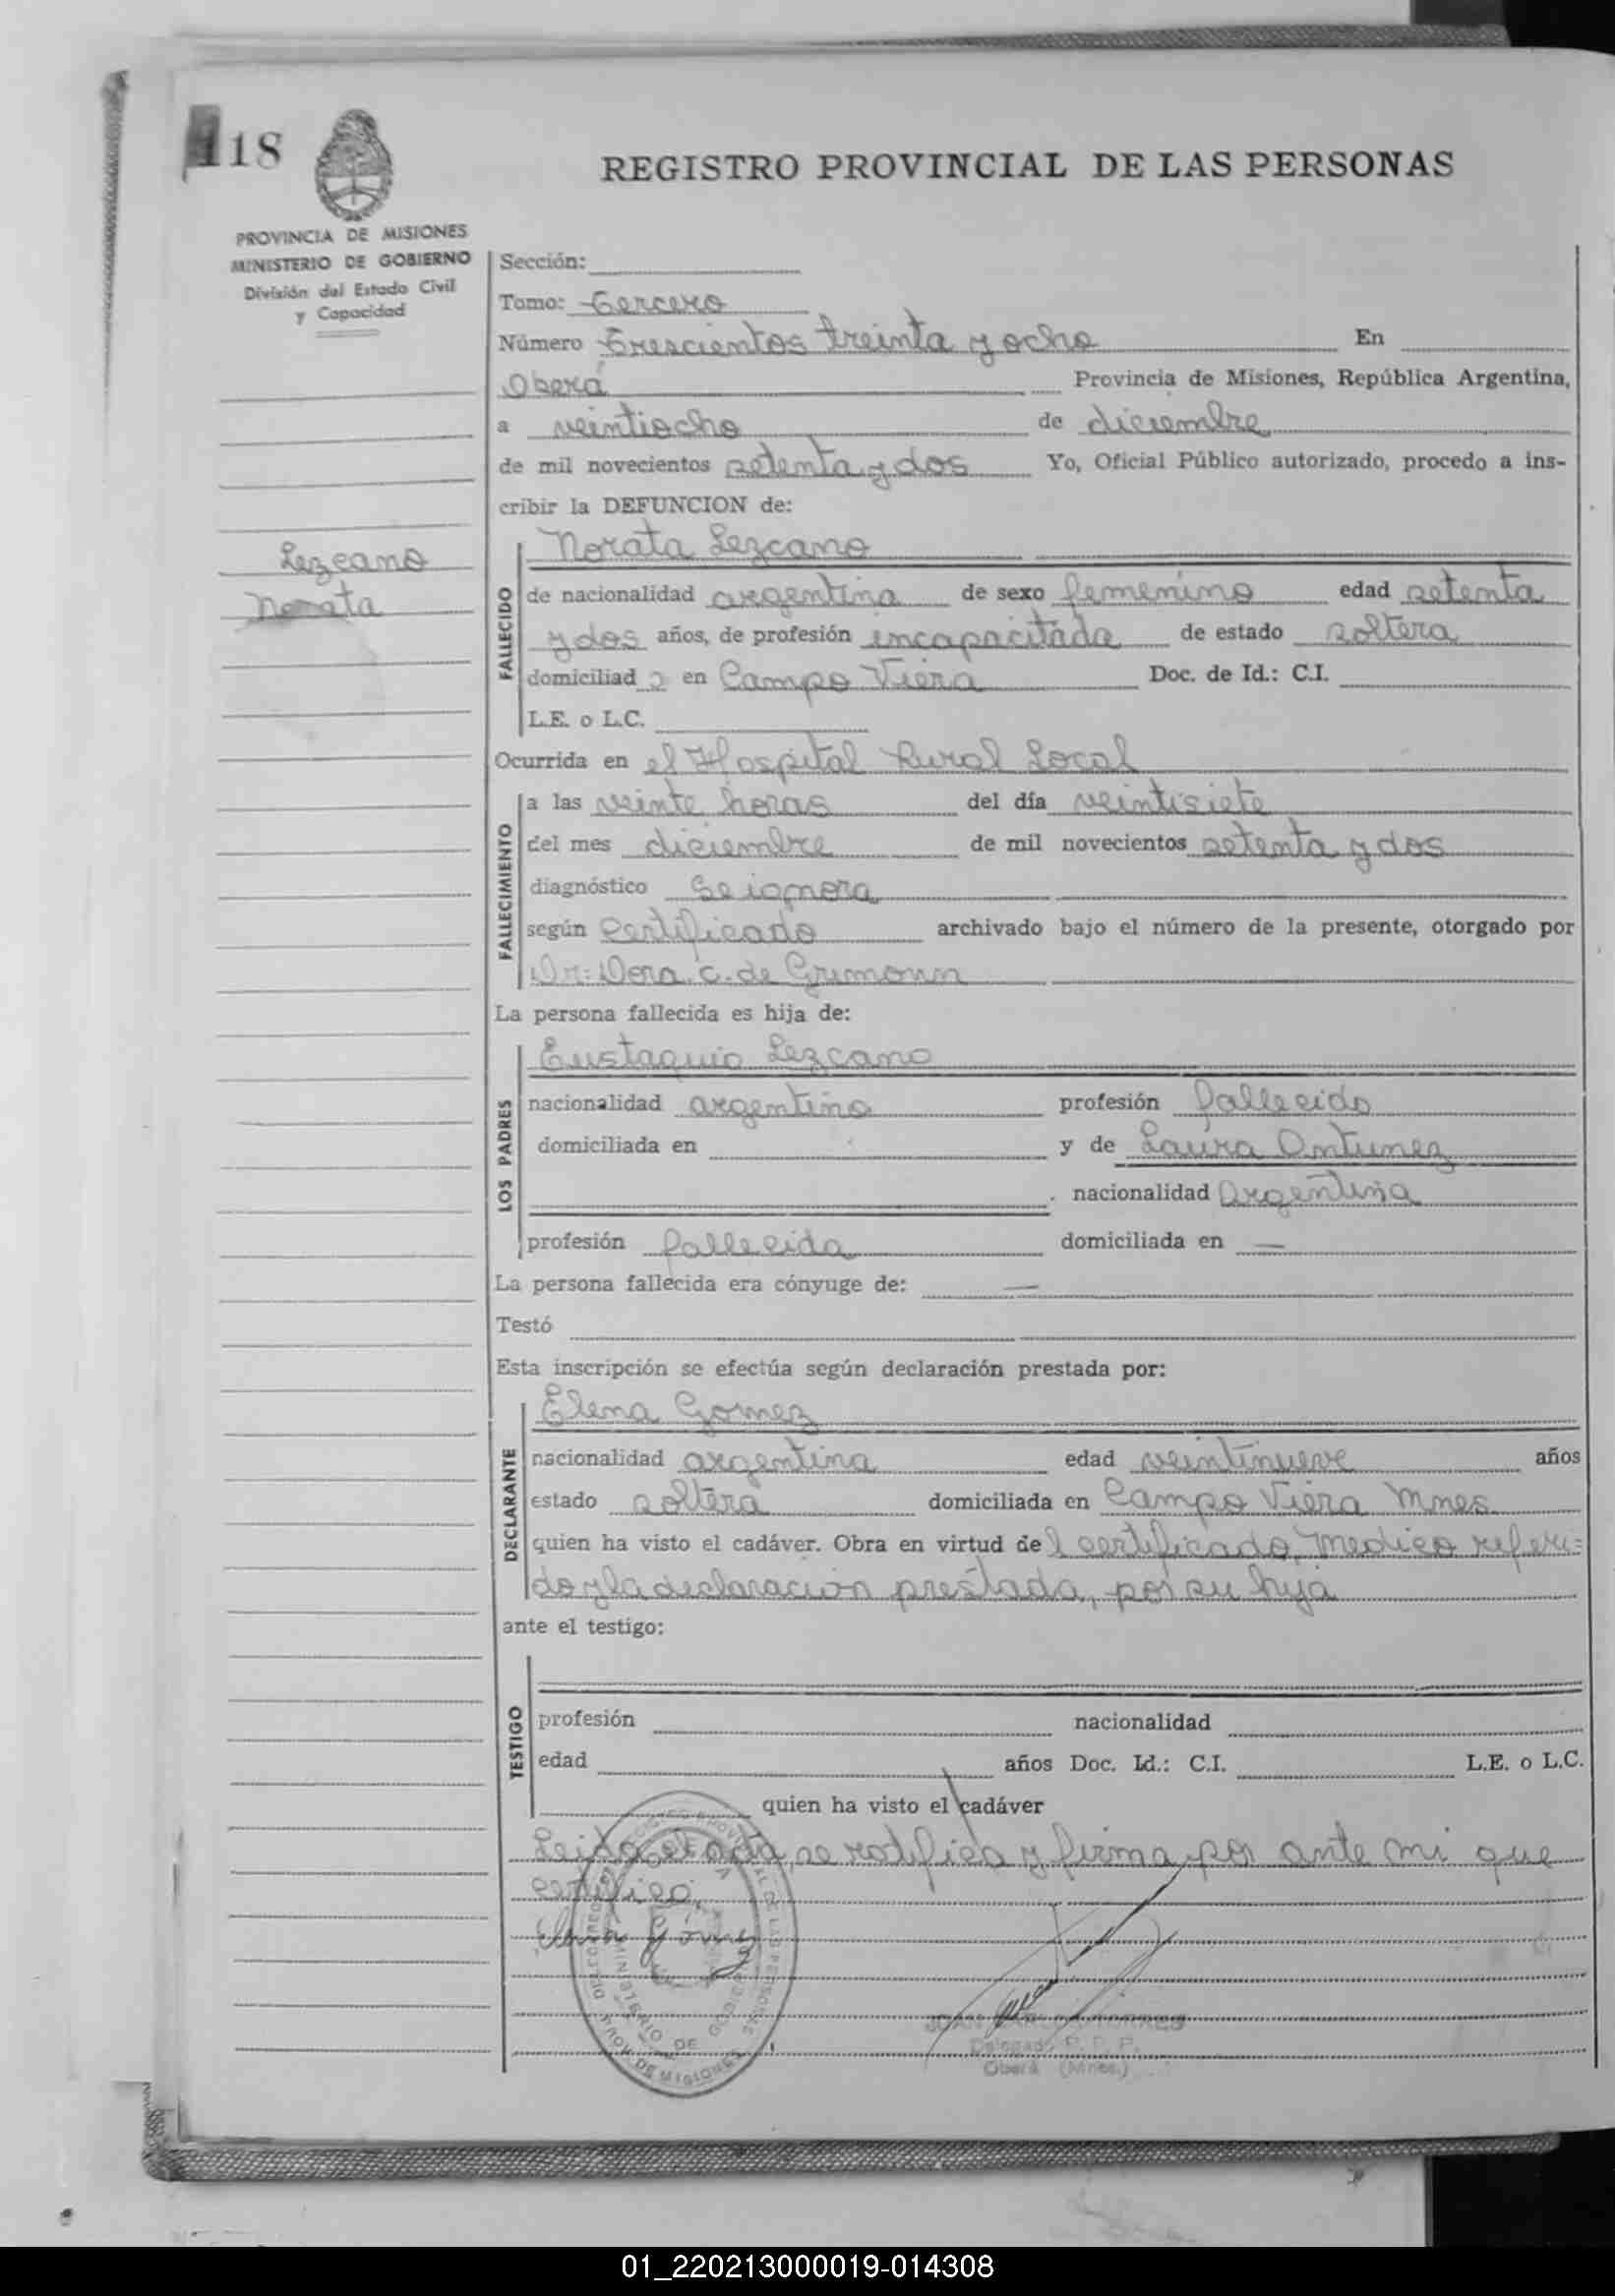 118
REGISTRO PROVINCIAL DE LAS PERSONAS
PROVINCIA DE MISIONES
MINISTERIO DE GOBIERNO
División del Estado Civil
y Capacidad
Lezcano
Norata
Sección:
Tomo: Tercero
Número Trescientos treinta y ocho En
Oberá Provincia de Misiones, República Argentina,
a veintiocho de diciembre
de mil novecientos setenta y dos Yo, Oficial Público autorizado, procedo a ins-
cribir la DEFUNCION de:
FALLECIDO
Norata Lezcano
de nacionalidad argentina de sexo femenino edad setenta
y dos años, de profesión incapacitada de estado soltera
domiciliad a en Campo Viera Doc. de Id.: C.I.
L.E. o L.C.
Ocurrida en el Hospital Rural Local
FALLECIMIENTO
a las veinte horas del día veintisiete
del mes diciembre de mil novecientos setenta y dos
diagnóstico Se ignora
según Certificado archivado bajo el número de la presente, otorgado por
Dr: Dora. C. de
La persona fallecida es hija de:
LOS PADRES
Eustaquio Lezcano
nacionalidad argentino profesión fallecido
domiciliada en y de Laura Antunez
nacionalidad Argentina
profesión fallecida domiciliada en —
La persona fallecida era cónyuge de: —
Testó
Esta inscripción se efectúa según declaración prestada por:
DECLARANTE
Elena Gomez
nacionalidad argentina edad veintinueve años
estado soltera domiciliada en Campo Viera Mnes.
quien ha visto el cadáver. Obra en virtud de l certificado, medico referi=
do y la declaración prestada, por su hija
ante el testigo:
TESTIGO
profesión nacionalidad
edad años Doc. Id.: C.I. L.E. o L.C.
quien ha visto el cadáver
Leida el acta, se ratifica y firma por ante mi que
certifico.
Elena Gómez
MINISTERIO DE GOBIERNO
PROV. DE MISIONES
JUAN CARLOS TORRES
Delegado R. P. P.
Oberá (Mnes.)
01_220213000019-014308